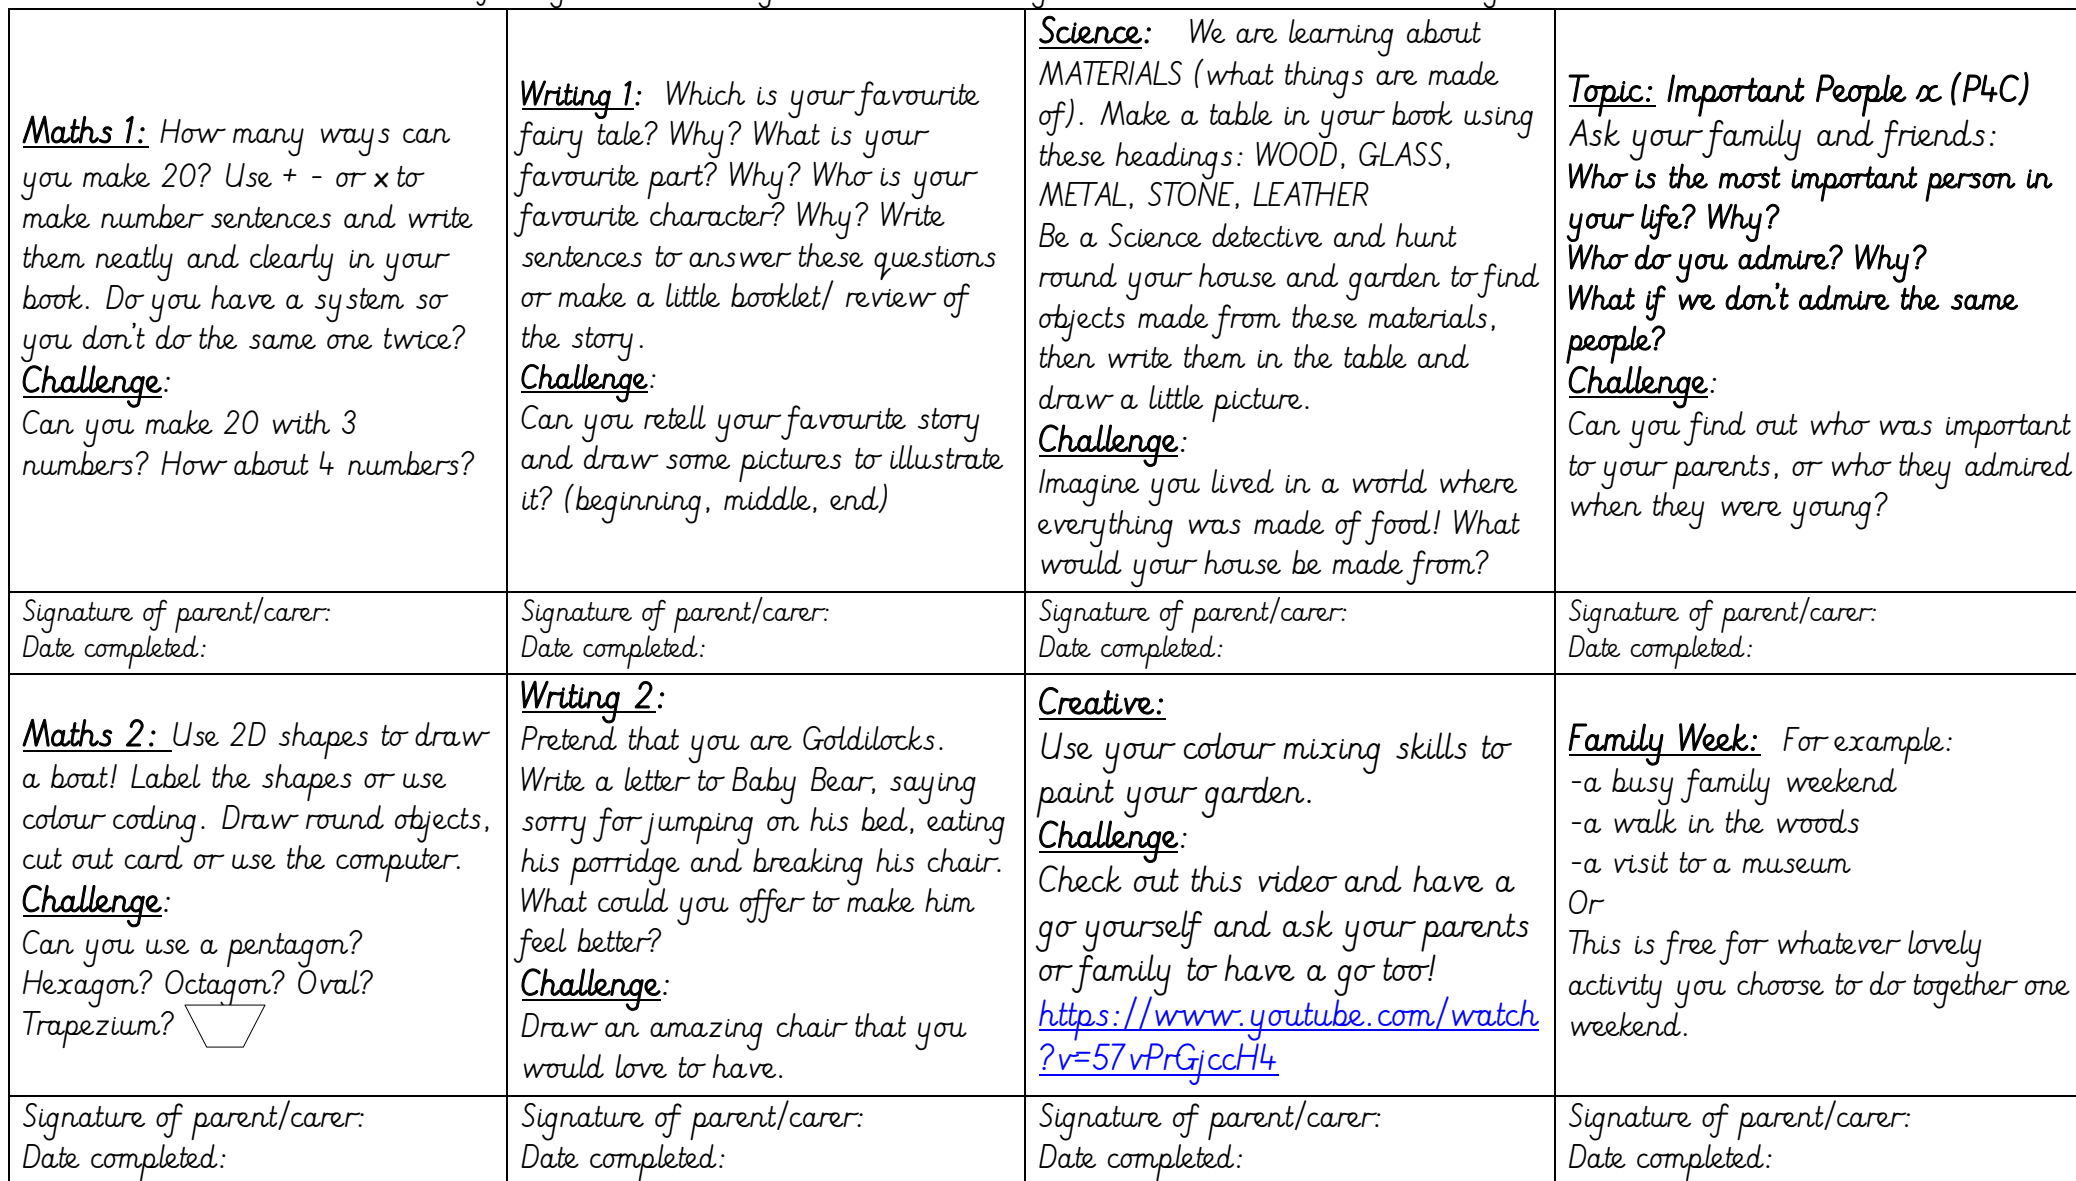 Maths 1: How many ways can
you make 20? Use + - or x to
make number sentences and write
them neatly and clearly in your
book. Do you have a system so
you don't do the same one twice?
Challenge:
Can you make 20 with 3
numbers? How about 4 numbers?
Writing 1: Which is your favourite
fairy tale? Why? What is your
favourite part? Why? Who is your
favourite character? Why? Write
sentences to answer these questions
or make a little booklet/ review of
the story.
Challenge:
Can you retell your favourite story
and draw some pictures to illustrate
it? (beginning, middle, end)
Science: We are learning about
MATERIALS (what things are made
of). Make a table in your book using
these headings: WOOD, GLASS,
METAL, STONE, LEATHER
Be a Science detective and hunt
round your house and garden to find
objects made from these materials,
then write them in the table and
draw a little picture.
Challenge:
Imagine you lived in a world where
everything was made of food! What
would your house be made from?
Topic: Important People x (P4C)
Ask your family and friends:
Who is the most important person in
your life? Why?
Who do you admire? Why?
What if we don't admire the same
people?
Challenge:
Can you find out who was important
to your parents, or who they admired
when they were young?
Signature of parent/carer:
Date completed:
Signature of parent/carer:
Date completed:
Signature of parent/carer:
Date completed:
Signature of parent/carer:
Date completed:
Maths 2: Use 2D shapes to draw
a boat! Label the shapes or use
colour coding. Draw round objects,
cut out card or use the computer.
Challenge:
Can you use a pentagon?
Hexagon? Octagon? Oval?
Trapezium?
Writing 2:
Pretend that you are Goldilocks.
Write a letter to Baby Bear, saying
sorry for jumping on his bed, eating
his porridge and breaking his chair.
What could you offer to make him
feel better?
Challenge:
Draw an amazing chair that you
would love to have.
Creative:
Use your colour mixing skills to
paint your garden.
Challenge:
Check out this video and have a
go yourself and ask your parents
or family to have a go too!
https://www.youtube.com/watch
?v=57vPrGjccH4
Family Week: For example:
-a busy family weekend
-a walk in the woods
-a visit to a museum
Or
This is free for whatever lovely
activity you choose to do together one
weekend.
Signature of parent/carer:
Date completed:
Signature of parent/carer:
Date completed:
Signature of parent/carer:
Date completed:
Signature of parent/carer:
Date completed: